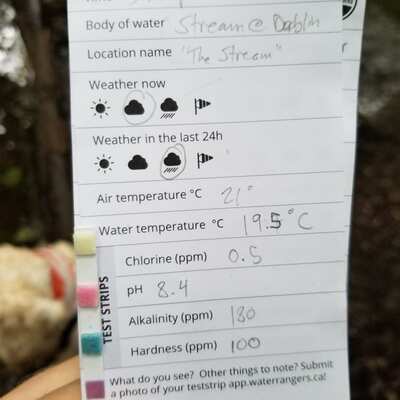 Body of water Stream @ Dablin
Location name "The Stream"
Weather now
Weather in the last 24h
Air temperature °C 21°
Water temperature °C 19.5°C
TEST STRIPS
Chlorine (ppm) 0.5
pH 8.4
Alkalinity (ppm) 180
Hardness (ppm) 100
What do you see? Other things to note? Submit
a photo of your teststrip app.waterrangers.ca!